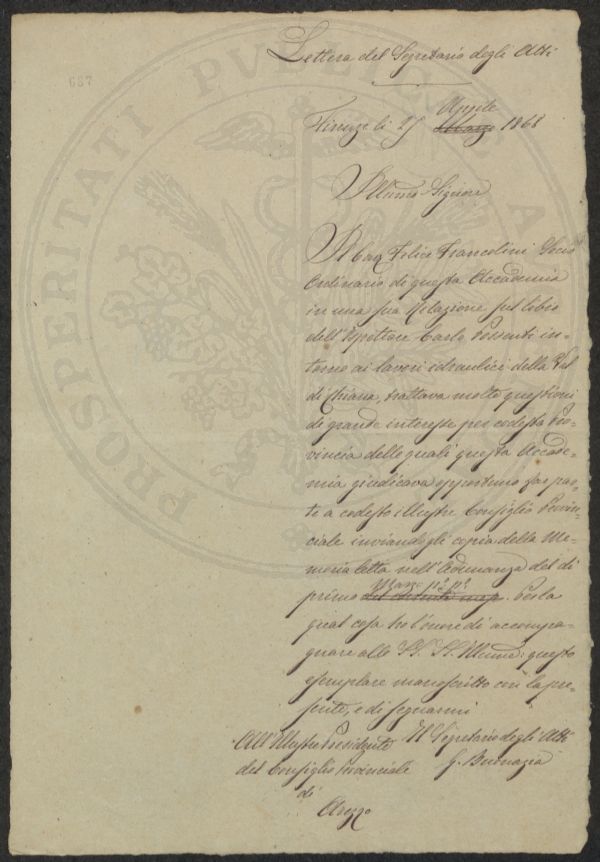 667
PROSPERITATI PUBLICAE A
Lettera del Segretario degli Atti
Aprile
Firenze li 27 Marzo 1868
Illmo Signore
Il Cav Felice Francolini Socio
Ordinario di questa Accademia
in una sua Relazione sul libro
dell'Ispettore Carlo Possenti in-
torno ai lavori idraulici della Val
di Chiana, trattava molte questioni
di grande interesse per codesta Pro-
vincia delle quali questa Accade-
mia giudicava opportuno far par-
te a codesto illustre Consiglio Provin-
ciale inviandogli copia della Me-
moria letta nell'Adunanza del dì
Marzo p.º p.º
primo del corrente mese. Per la
qual cosa ho l'onore di accompa-
gnare alle SS. LL. Illme: questo
esemplare manoscritto con la pre-
sente, e di segnarmi
All'Illustre Presidente
del Consiglio Provinciale
di
Arezzo
Il Segretario degli Atti
G. Buonazia